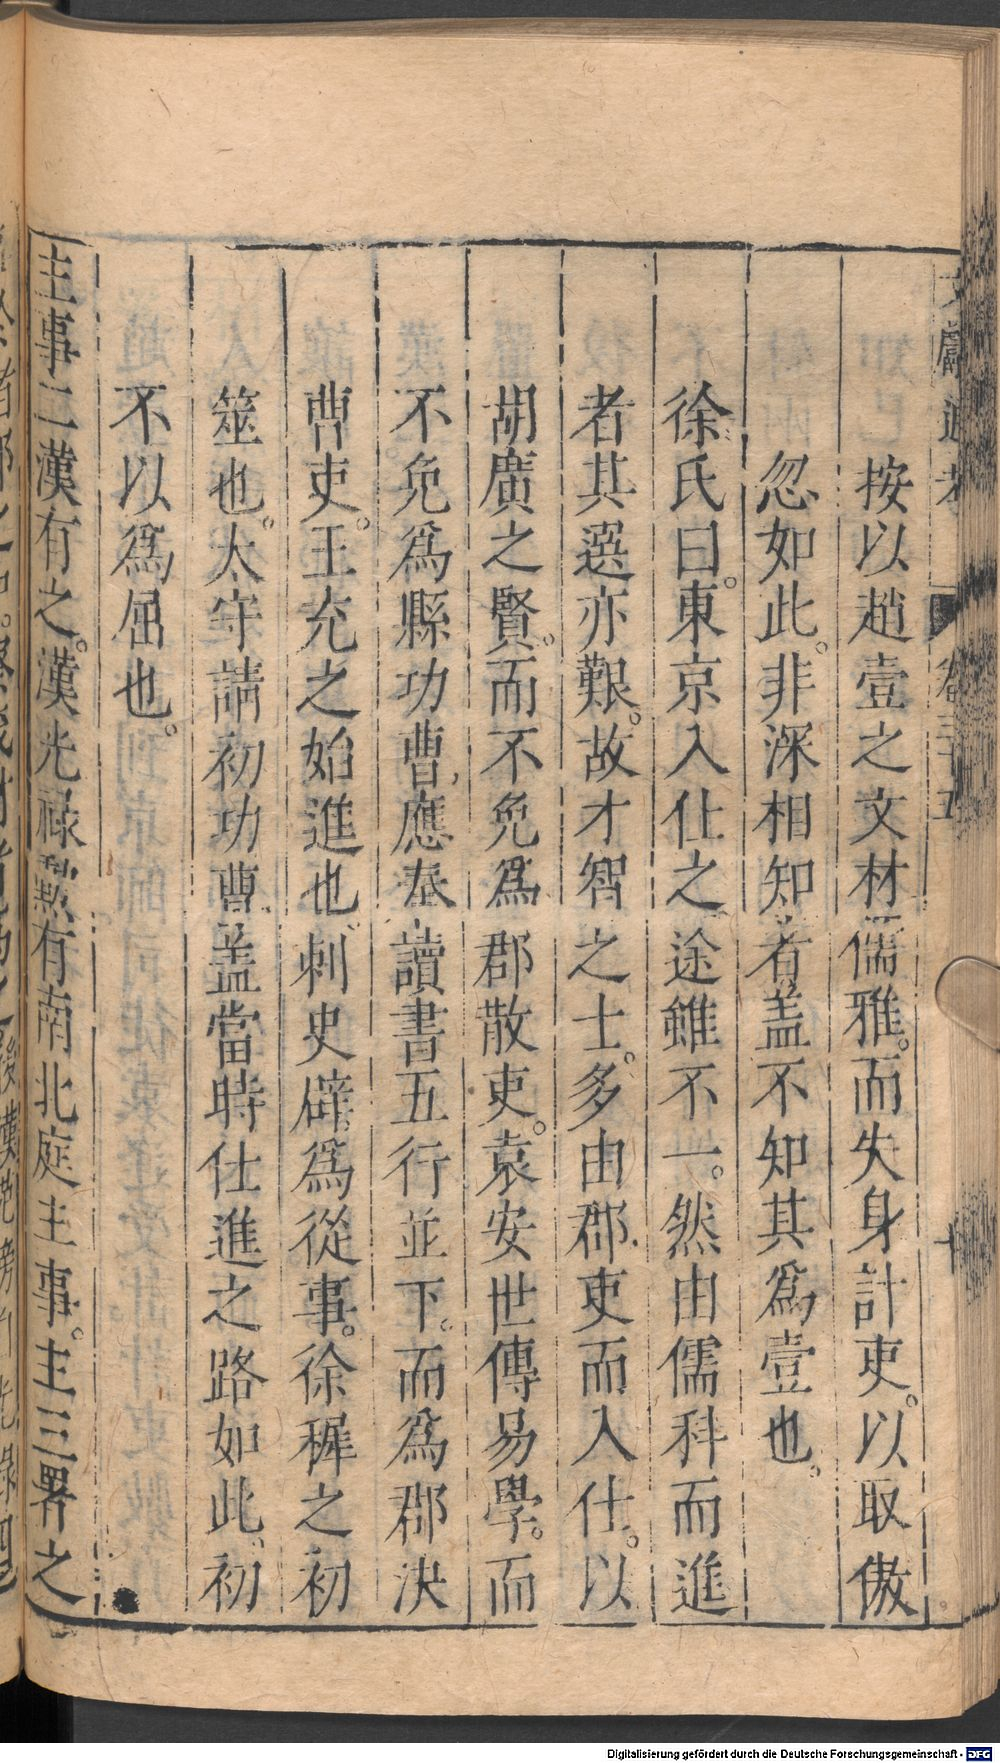 文獻通考 卷三十五 十
按以趙壹之文材儒雅。而失身計吏。以取傲
忽如此。非深相知者。盖不知其爲壹也。
徐氏曰。東京入仕之途雖不一。然由儒科而進
者其選亦艱。故才智之士。多由郡吏而入仕。以
胡廣之賢。而不免爲郡散吏。袁安世傳易學。而
不免爲縣功曹。應奉讀書五行並下。而爲郡決
曹吏。王充之始進也。刺史辟爲從事。徐穉之初
筮也。太守請初功曹盖當時仕進之路如此。初
不以爲屈也。
主事二漢有之。漢光祿勲有南北庭主事。主三署之
Digitalisierung gefördert durch die Deutsche Forschungsgemeinschaft - DFG